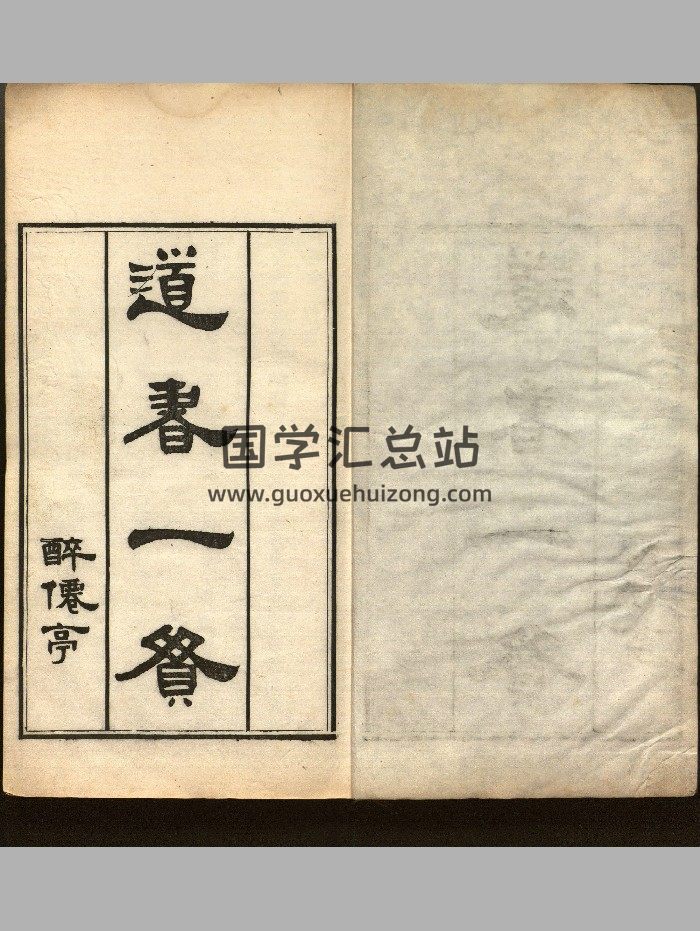 道書一貫
醉僊亭
国学汇总站
www.guoxuehuizong.com